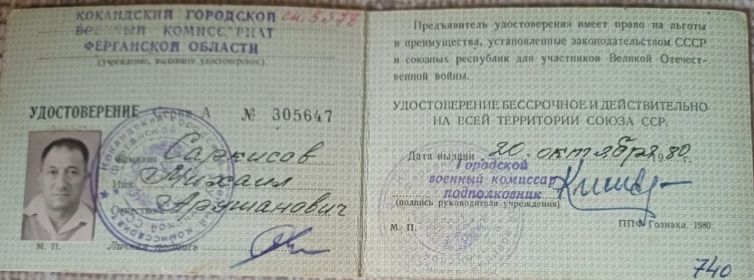 КОКАНДСКИЙ ГОРОДСКОЙ
ВОЕННЫЙ КОМИССАРИАТ
ФЕРГАНСКОЙ ОБЛАСТИ
(учреждение, выдавшее удостоверение)
УДОСТОВЕРЕНИЕ Серия А № 305647
Фамилия Саркисов
Имя Михаил
Отчество Арушанович
М. П. Личная подпись
Предъявитель удостоверения имеет право на льготы
и преимущества, установленные законодательством СССР
и союзных республик для участников Великой Отечест-
венной войны.
УДОСТОВЕРЕНИЕ БЕССРОЧНОЕ И ДЕЙСТВИТЕЛЬНО
НА ВСЕЙ ТЕРРИТОРИИ СОЮЗА ССР.
Дата выдачи 20 октября 80 г.
Городской
военный комиссар
подполковник
(подпись руководителя учреждения)
М. П. ППФ Гознака. 1980.
740